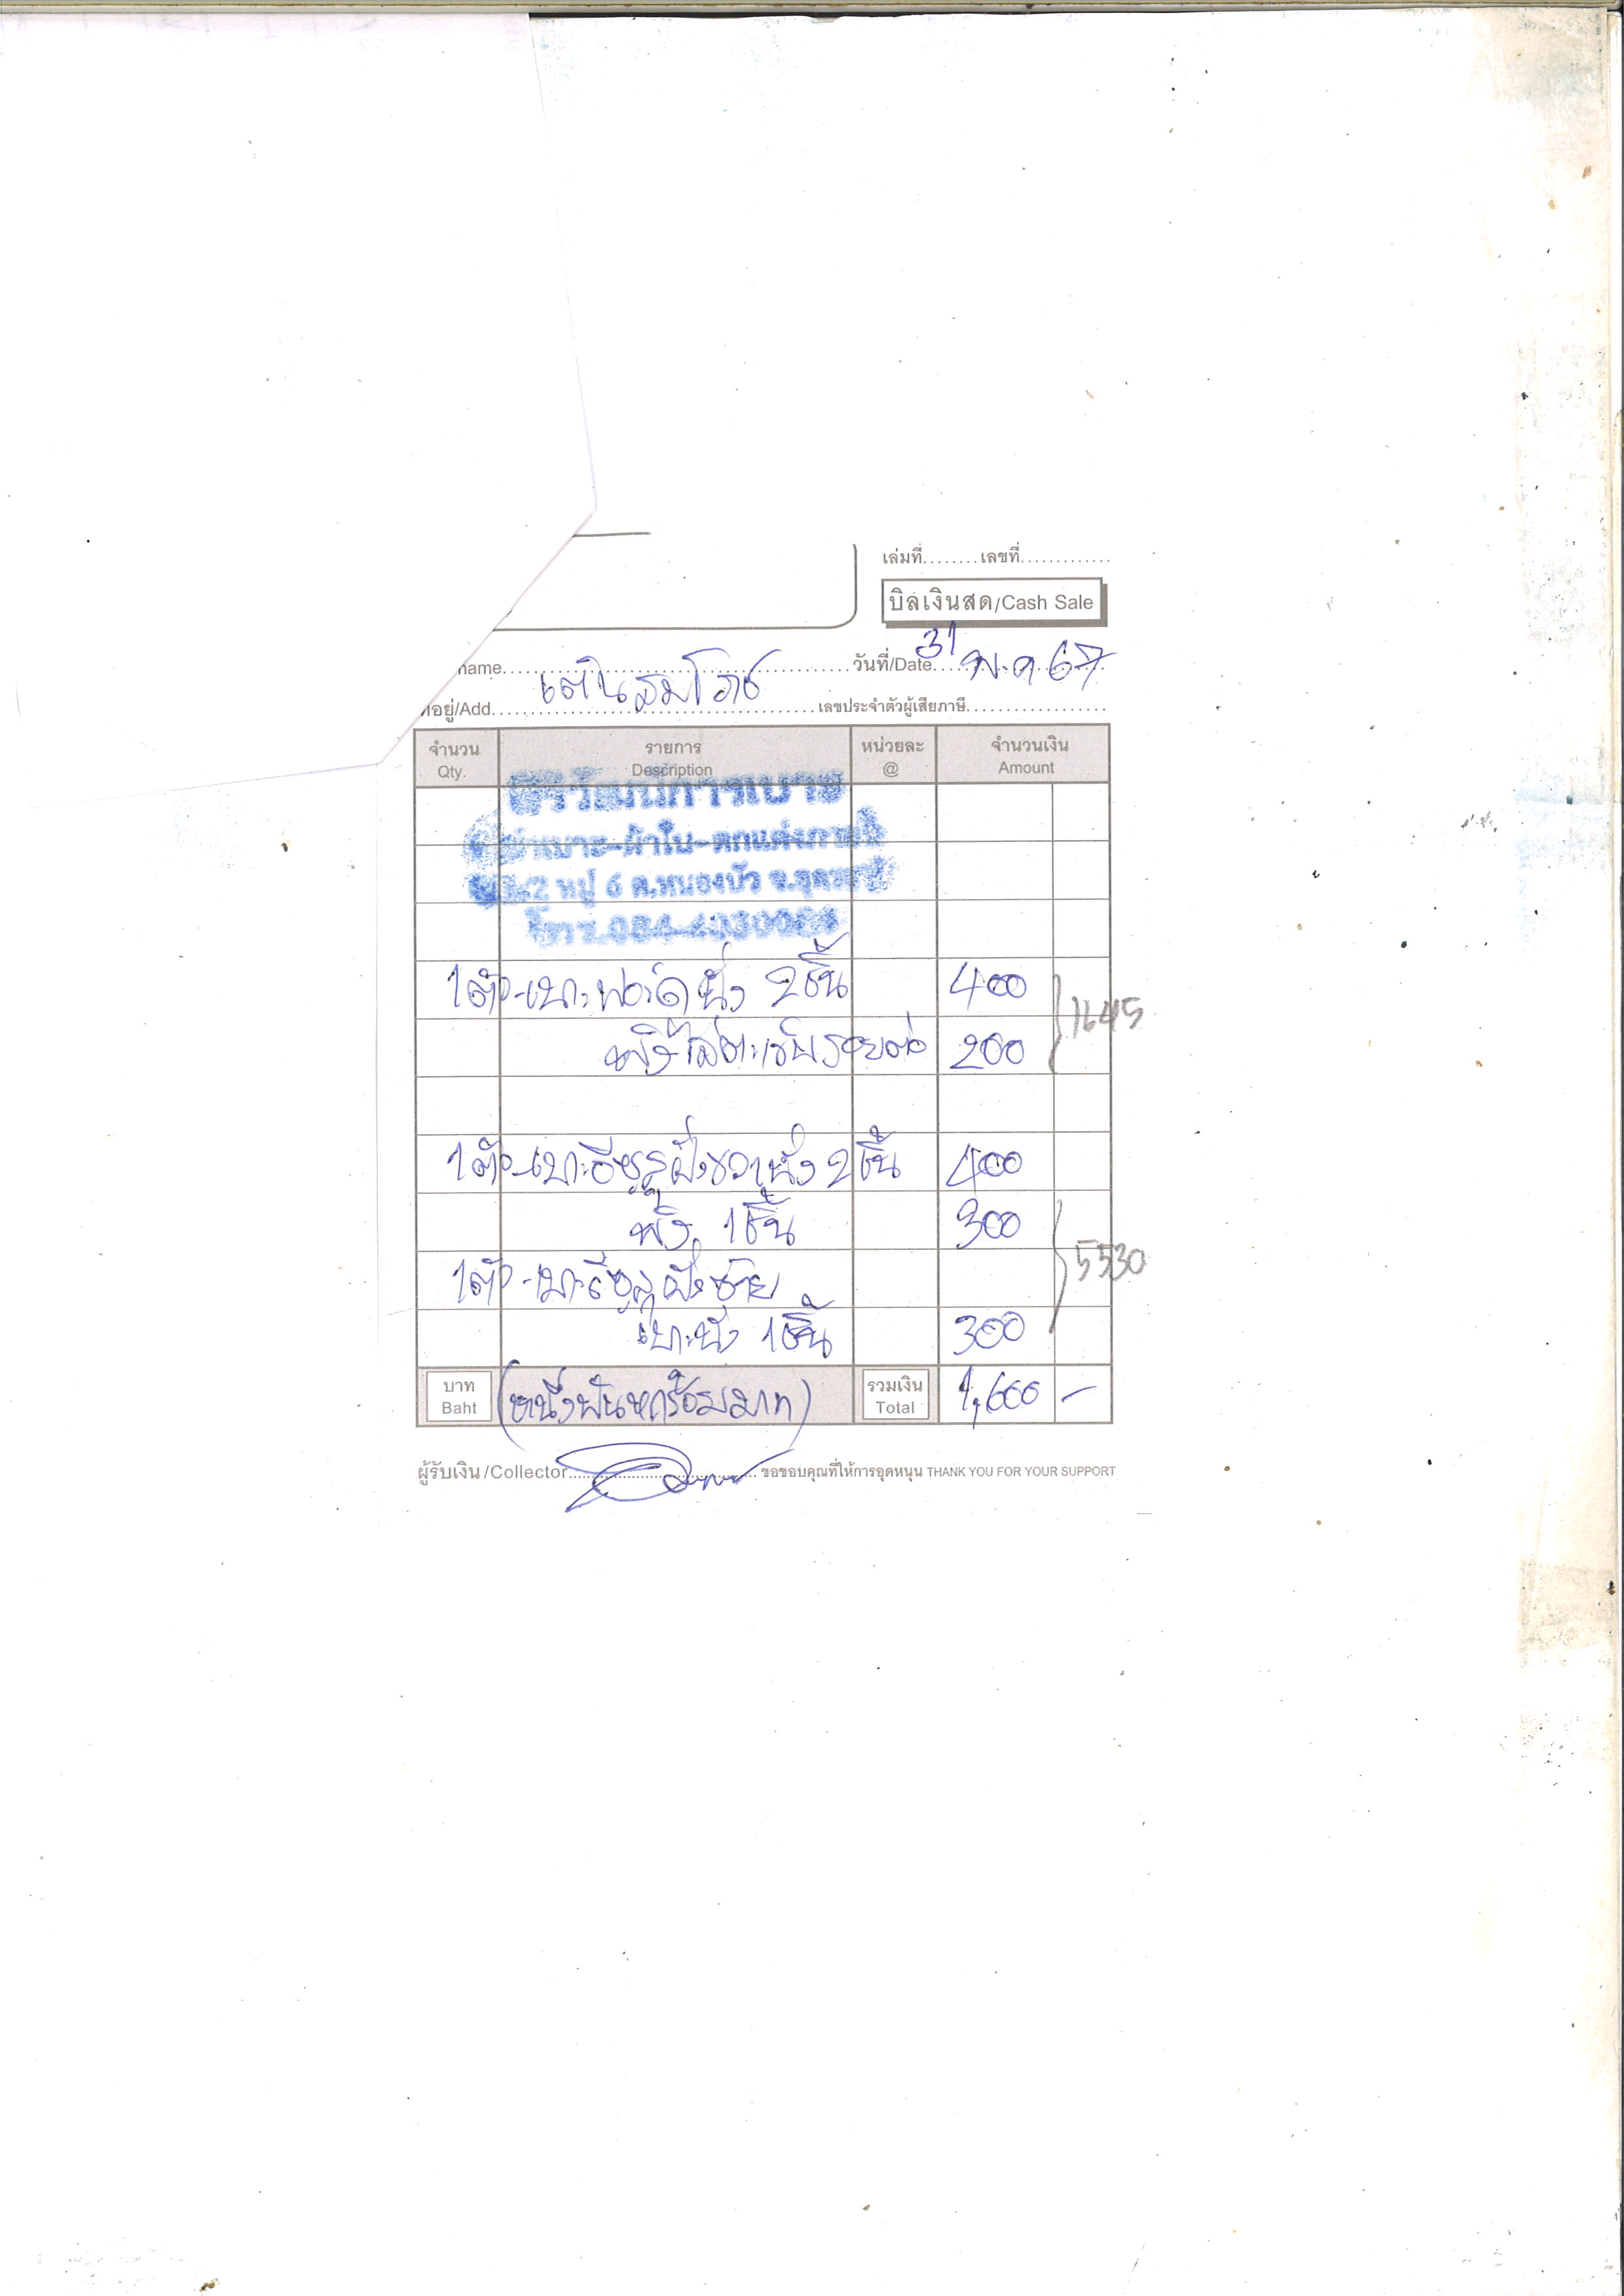 เล่มที่........เลขที่.............
บิลเงินสด/Cash Sale
name.......... วันที่/Date.......... 31 พ.ค 67
ที่อยู่/Add.......... เลขประจำตัวผู้เสียภาษี..........
จำนวน รายการ หน่วยละ จำนวนเงิน
Qty. Description @ Amount
-ผ้าใบ-ตกแต่งภายใน
หมู่ 6 ต.หนองบัว จ.อุดรธานี
โทร.084-
1ตัว-เบาะฟอร์ดนั่ง 2ชิ้น 400
พิง 200
1645
1ตัว-เบาะอีซูซุฝั่งขวานั่ง 2ชิ้น 400
พิง 1ชิ้น 300
1ตัว-เบาะอีซูซุฝั่งซ้าย
5530
เบาะนั่ง 1ชิ้น 300
บาท (หนึ่งพันหกร้อยบาท) รวมเงิน 1,600 -
Baht Total
ผู้รับเงิน/Collector.......... ขอขอบคุณที่ให้การอุดหนุน THANK YOU FOR YOUR SUPPORT